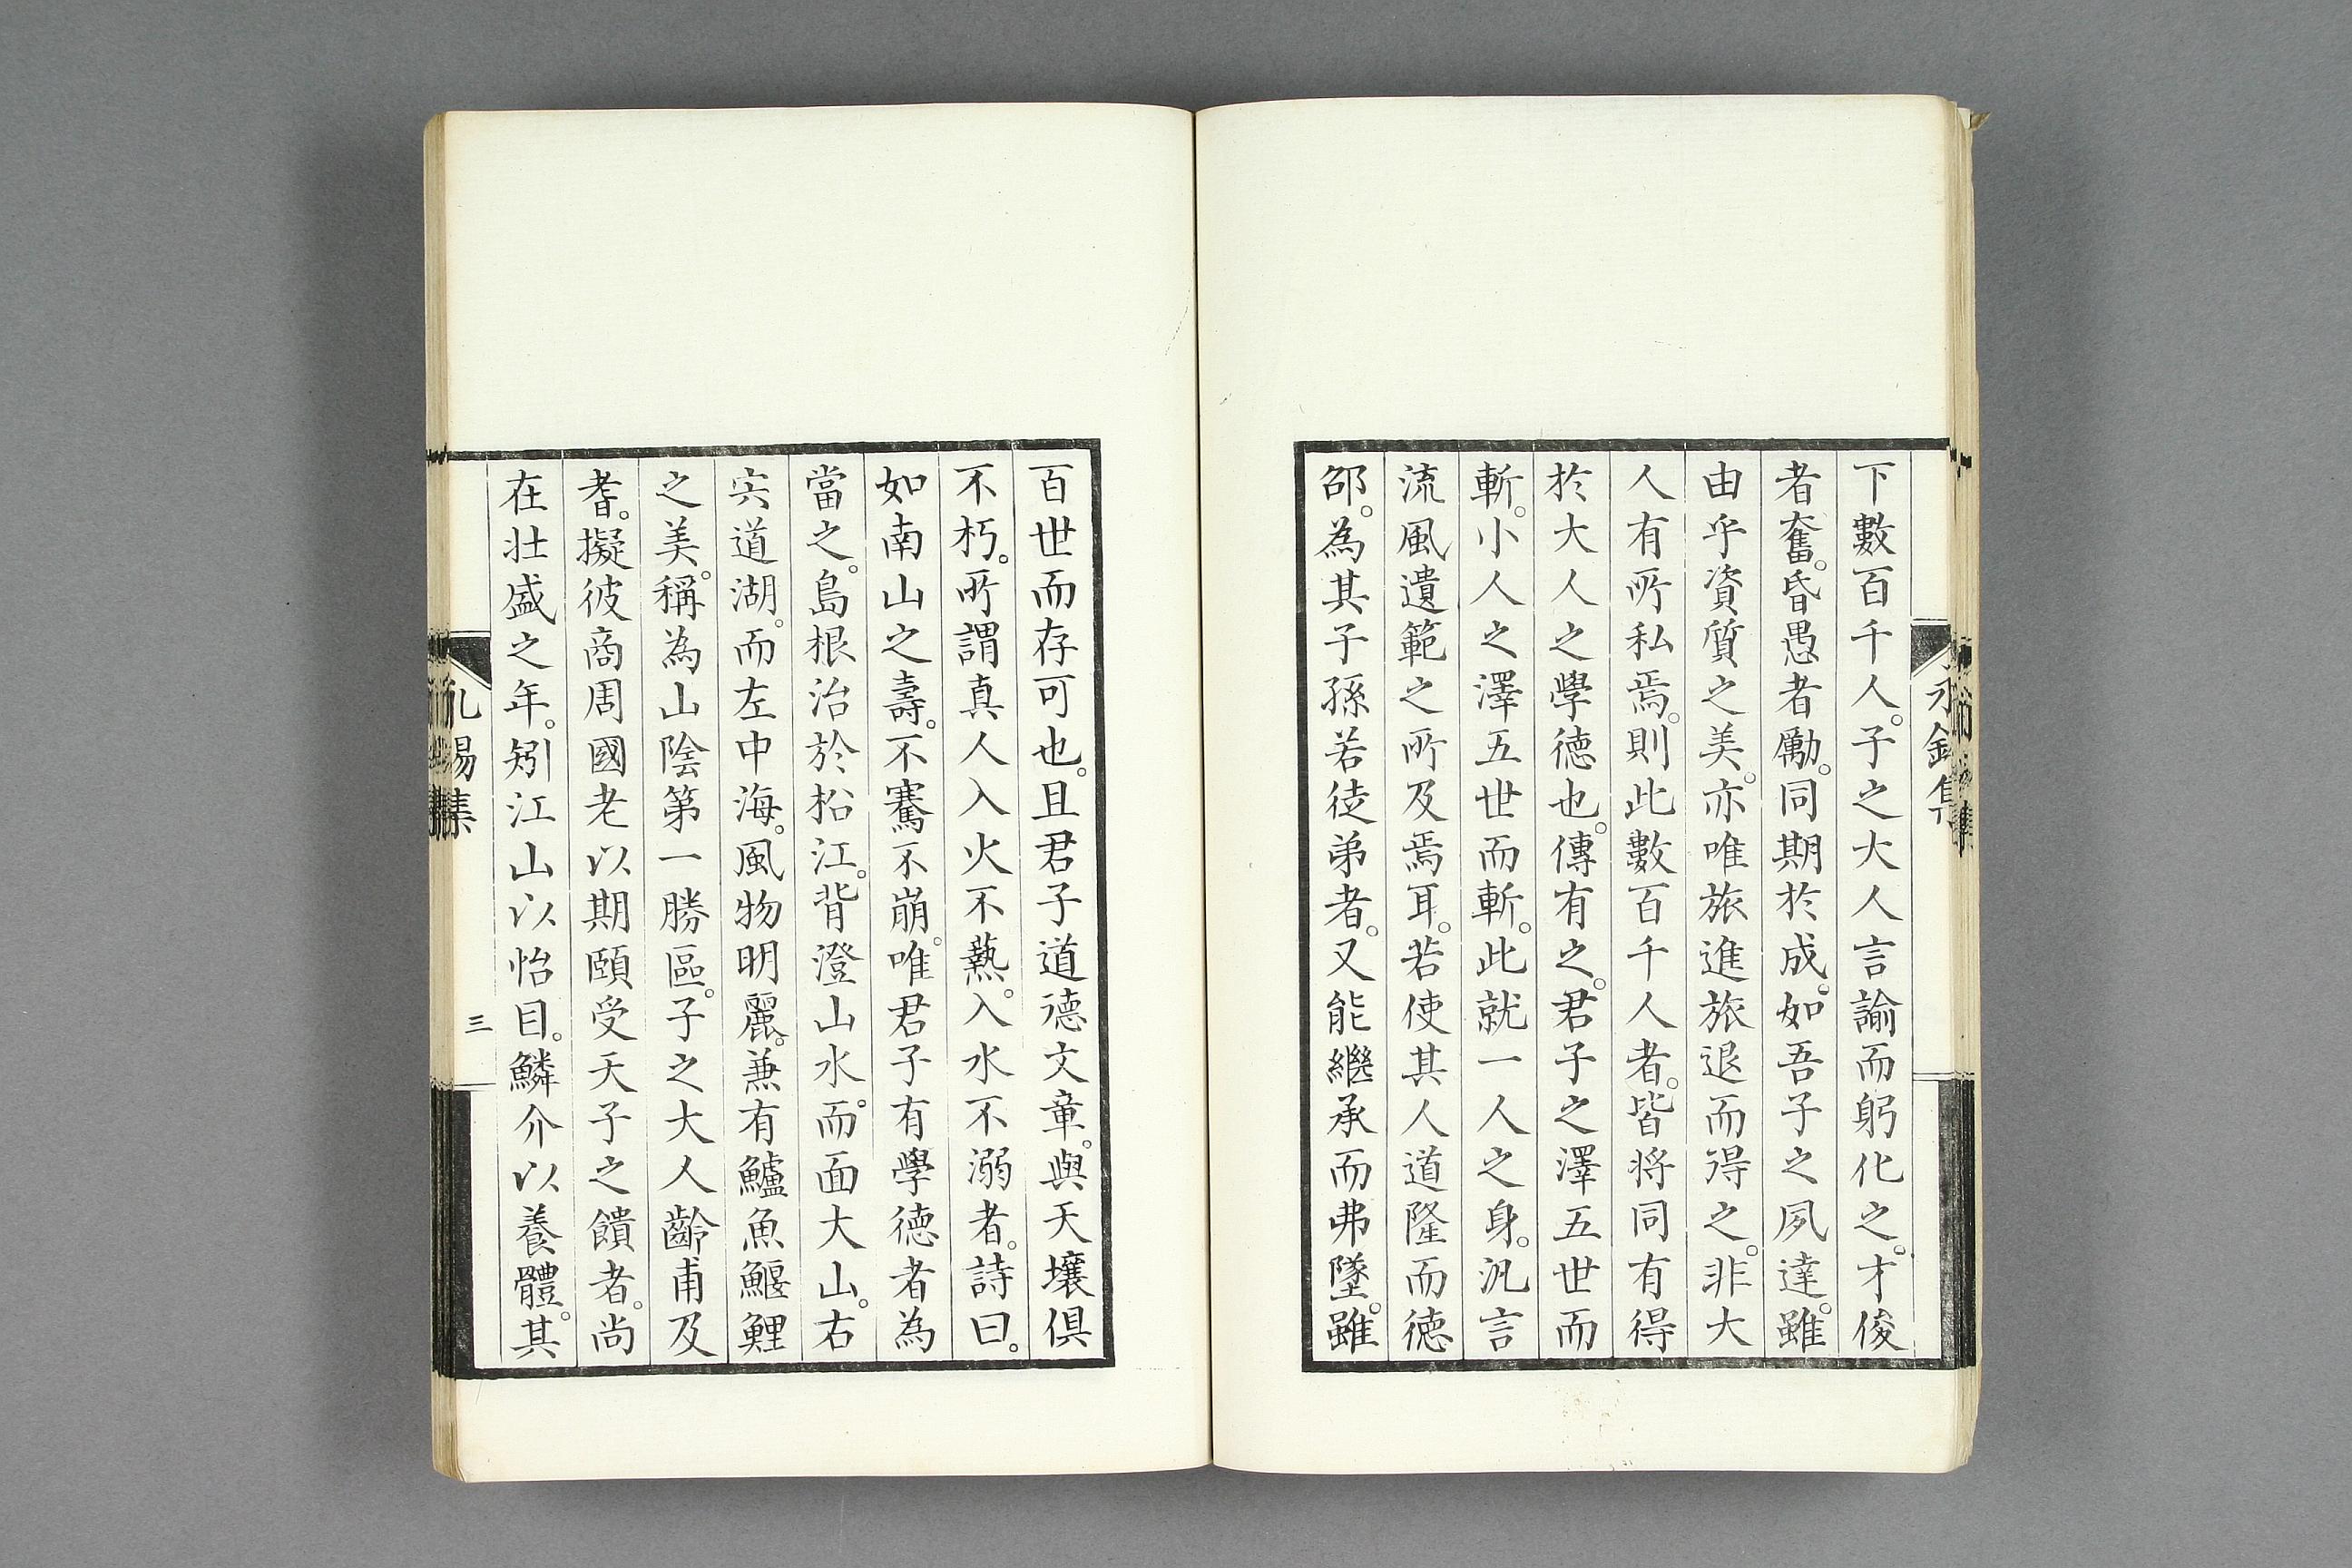 下數百千人。子之大人言諭而躬化之。才俊
者奮。昏愚者勵。同期於成。如吾子之夙達。雖
由乎資質之美。亦唯旅進旅退而得之。非大
人有所私焉。則此數百千人者。皆将同有得
於大人之學德也。傳有之。君子之澤五世而
斬。小人之澤五世而斬。此就一人之身。汎言
流風遺範之所及焉耳。若使其人道隆而德
邵。為其子孫若徒弟者。又能繼承而弗墜。雖
百世而存可也。且君子道德文章。與天壤俱
不朽。所謂真人入火不熱。入水不溺者。詩曰。
如南山之壽。不騫不崩。唯君子有學德者為
當之。島根治於松江。背澄山水。而面大山。右
宍道湖。而左中海。風物明麗。兼有鱸魚鰋鯉
之美。稱為山陰第一勝區。子之大人齡甫及
耆。擬彼商周國老以期頤受天子之饋者。尚
在壯盛之年。矧江山以怡目。鱗介以養體。其
三